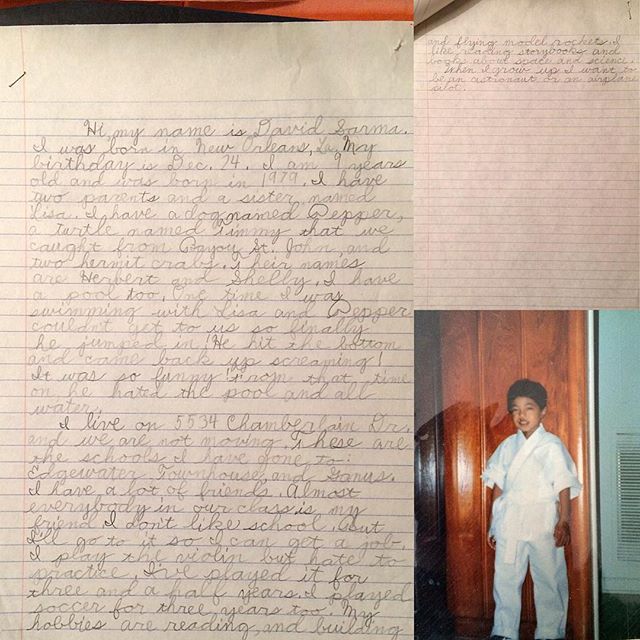 Hi, my name is David Sarma.
I was born in New Orleans, La. My
birthday is Dec. 24. I am 9 years
old and was born in 1979. I have
two parents and a sister named
Lisa. I have a dog named Pepper,
a turtle named Timmy that we
caught from Bayou St. John, and
two hermit crabs. Their names
are Herbert and Shelly. I have
a pool too. One time I was
swimming with Lisa and Pepper
couldnt get to us so finally
he jumped in! He hit the bottom
and came back up screaming!
It was so funny! From that time
on he hated the pool and all
water.
I live on 5534 Chamberlain Dr.
and we are not moving. These are
the schools I have gone to:
Edgewater, Townhouse, and Ganus.
I have a lot of friends. Almost
everybody in our class is my
friend. I don't like school, but
I'll go to it so I can get a job.
I play the violin but hate to
practice. I've played it for
three and a half years. I played
soccer for three years too. My
hobbies are reading, and building
and flying model rockets. I
like reading storybooks and
books about space and science.
When I grow up I want to
be an astronaut or an airplane
pilot.